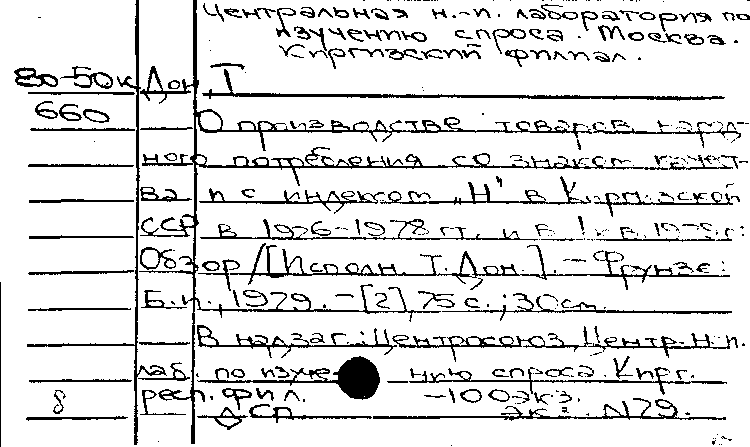 Центральная н.-п. лаборатория по
изучению спроса. Москва.
Киргизский филиал.
80-50к Дон, Т
660 О производстве товаров народ-
ного потребления со знаком качест-
ва и с индексом „Н" в Киргизской
ССР в 1976-1978 гг. и в
Обзор /[Исполн. Т. Дон.]. - Фрунзе:
Б.и., 1979. - [2], 75 с.; 30 см.
В надзаг.: Центросоюз, Центр. н.-п.
лаб. по изуче- нию спроса. Кирг.
респ. фил. -100 экз.
8 ДСП экз. N79.